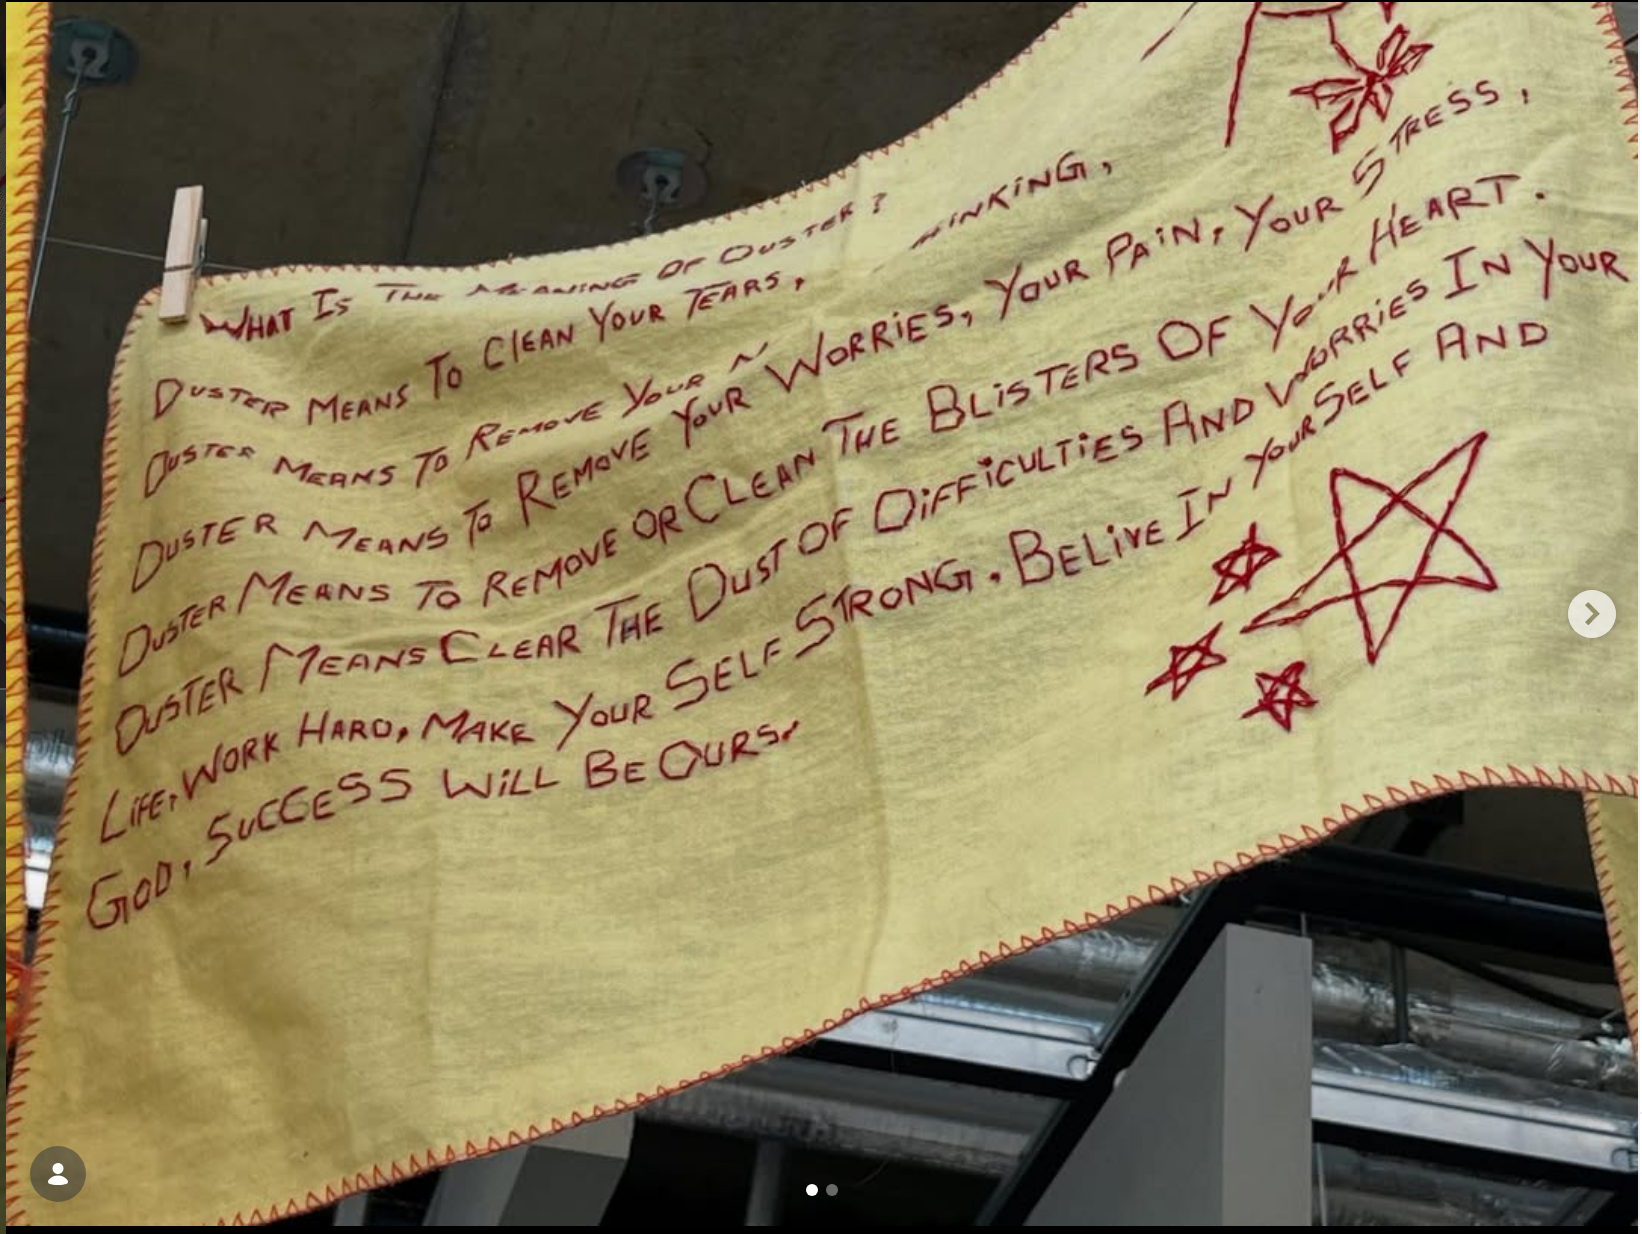 What Is The Meaning Of Duster?
Duster Means To Clean Your Tears,
Duster Means To Remove Your
Duster Means To Remove Your Worries, Your Pain, Your Stress,
Duster Means To Remove or Clean The Blisters Of Your Heart.
Duster Means Clear The Dust Of Difficulties And Worries In Your
Life, Work Hard, Make Your Self Strong. Belive In Your Self And
God, Success Will Be Ours.